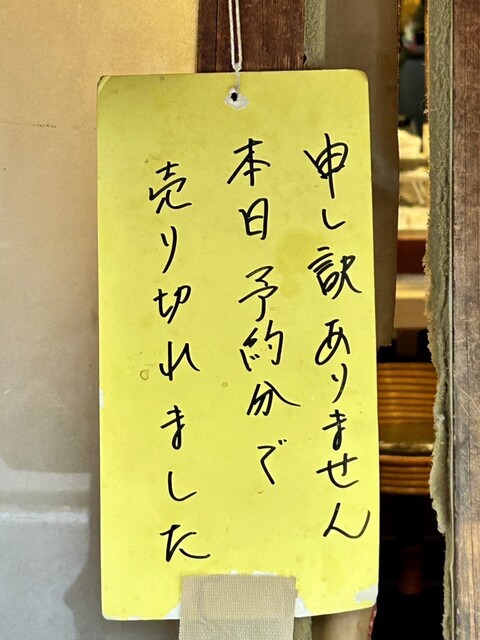 申し訳ありません
本日予約分で
売り切れました